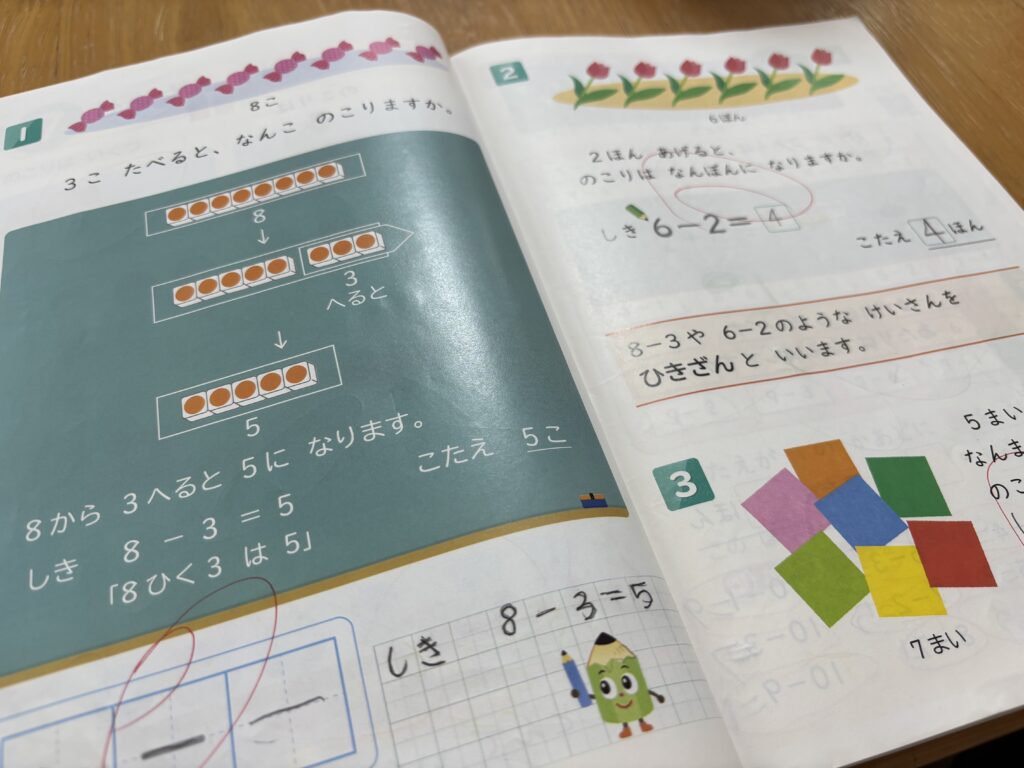 1
8こ
3こ たべると、なんこ のこりますか。
8
↓
3
へると
↓
5
8から 3へると 5に なります。
こたえ 5こ
しき 8 − 3 = 5
「8ひく3 は 5」
しき 8−3=5
2
6ぽん
2ほん あげると、
のこりは なんぼんに なりますか。
しき 6−2=4
こたえ 4ほん
8−3や 6−2のような けいさんを
ひきざんと いいます。
3
5まい
なんま
のこ
7まい